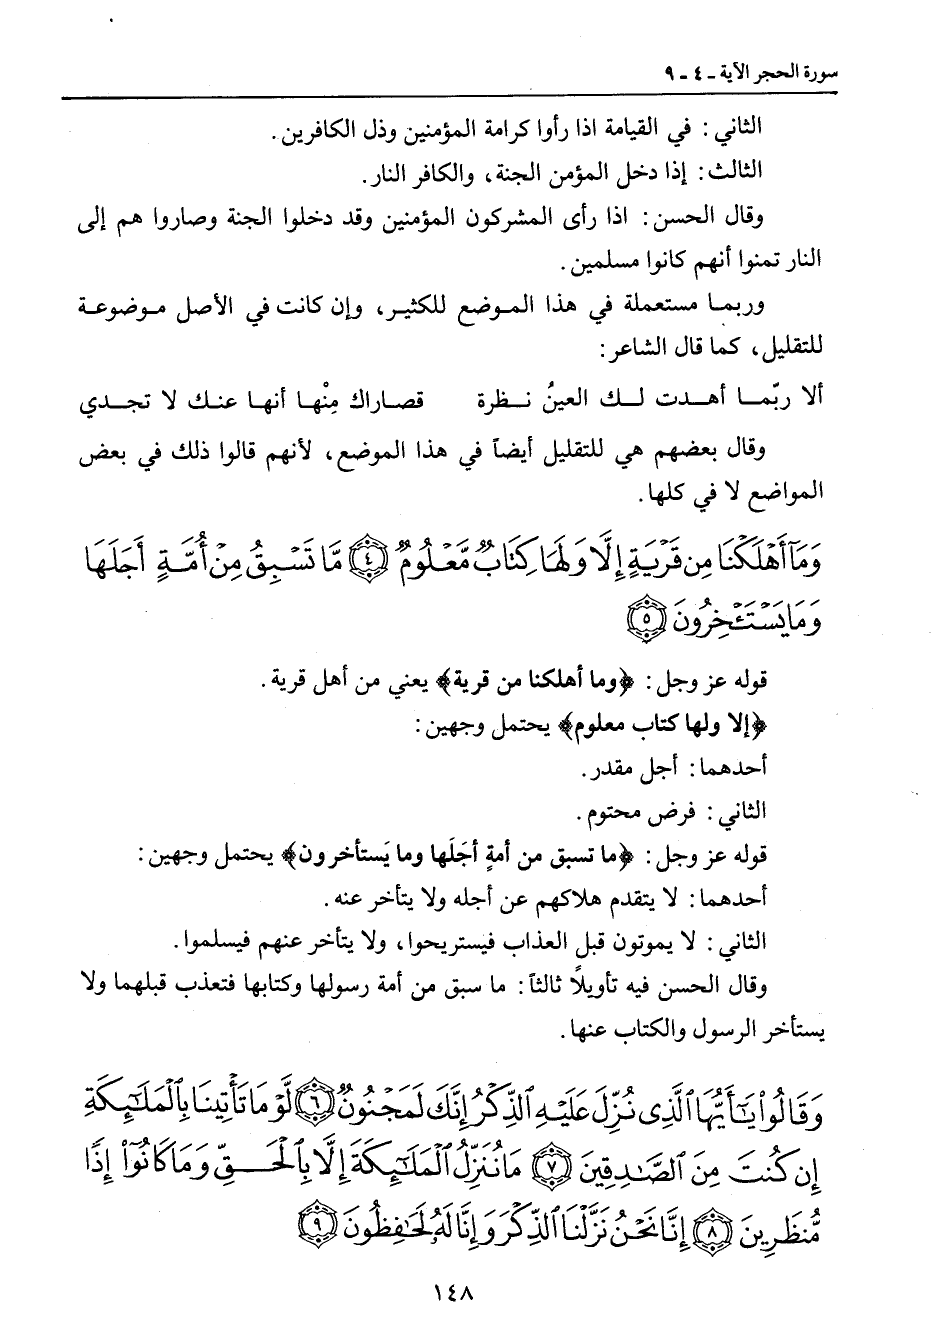 سورة الحجر الآية ـ ٤ ـ ٩
الثاني: في القيامة اذا رأوا كرامة المؤمنين وذل الكافرين.
الثالث: إذا دخل المؤمن الجنة، والكافر النار.
وقال الحسن: اذا رأى المشركون المؤمنين وقد دخلوا الجنة وصاروا هم إلى
النار تمنوا أنهم كانوا مسلمين.
وربمـا مستعملة في هذا المـوضع للكثيـر، وإن كانت في الأصل مـوضوعـة
للتقليل، كما قال الشاعر:
ألا ربّمـــا أهـــدت لــك العينُ نــظرة قصــاراك مِنْهــا أنهــا عنــك لا تجــدي
وقال بعضهم هي للتقليل أيضاً في هذا الموضع، لأنهم قالوا ذلك في بعض
المواضع لا في كلها.
وَمَآ أَهْلَكْنَا مِن قَرْيَةٍ إِلَّا وَلَهَا كِتَابٌ مَّعْلُومٌ ﴿٤﴾ مَّا تَسْبِقُ مِنْ أُمَّةٍ أَجَلَهَا
وَمَا يَسْتَـْٔخِرُونَ ﴿٥﴾
قوله عز وجل: ﴿وما أهلكنا من قرية﴾ يعني من أهل قرية.
﴿إلا ولها كتاب معلوم﴾ يحتمل وجهين:
أحدهما: أجل مقدر.
الثاني: فرض محتوم.
قوله عز وجل: ﴿ما تسبق من أمةٍ أجَلَها وما يَستأخرون﴾ يحتمل وجهين:
أحدهما: لا يتقدم هلاكهم عن أجله ولا يتأخر عنه.
الثاني: لا يموتون قبل العذاب فيستريحوا، ولا يتأخر عنهم فيسلموا.
وقال الحسن فيه تأويلاً ثالثاً: ما سبق من أمة رسولها وكتابها فتعذب قبلهما ولا
يستأخر الرسول والكتاب عنها.
وَقَالُوا۟ يَـٰٓأَيُّهَا ٱلَّذِى نُزِّلَ عَلَيْهِ ٱلذِّكْرُ إِنَّكَ لَمَجْنُونٌ ﴿٦﴾ لَّوْ مَا تَأْتِينَا بِٱلْمَلَـٰٓئِكَةِ
إِن كُنتَ مِنَ ٱلصَّـٰدِقِينَ ﴿٧﴾ مَا نُنَزِّلُ ٱلْمَلَـٰٓئِكَةَ إِلَّا بِٱلْحَقِّ وَمَا كَانُوٓا۟ إِذًا
مُّنظَرِينَ ﴿٨﴾ إِنَّا نَحْنُ نَزَّلْنَا ٱلذِّكْرَ وَإِنَّا لَهُۥ لَحَـٰفِظُونَ ﴿٩﴾
١٤٨